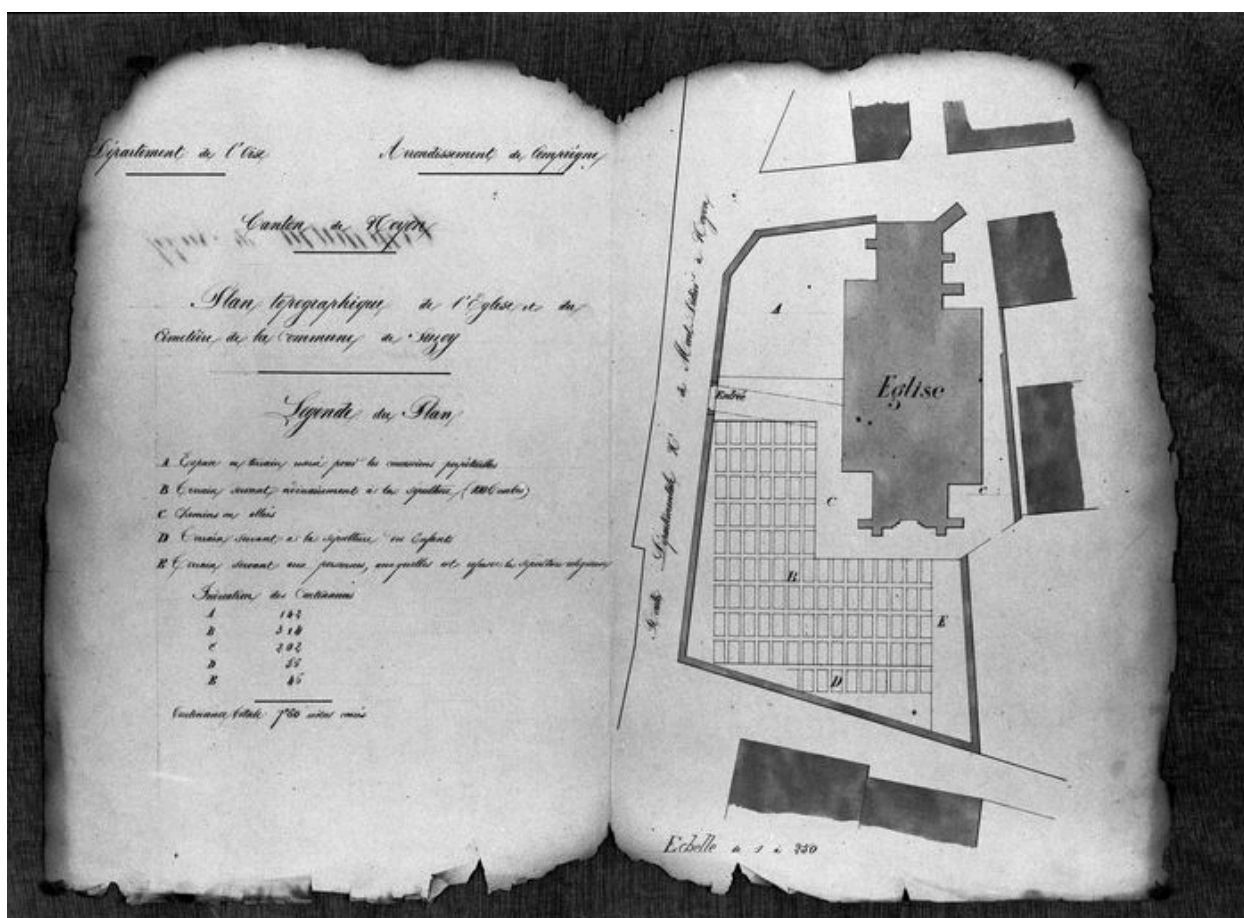 Département de l'Oise Arrondissement de Compiègne
Canton de Noyon
Plan topographique de l'Eglise et du
Cimetière de la Commune de Suzoy
Légende du Plan
A Espace ou terrain réservé pour les concessions perpétuelles
B Terrain servant à la sépulture (100 tombes)
C Chemins ou allées
D Terrain servant à la sépulture des Enfants
E Terrain servant aux personnes, auxquelles est refusée la sépulture religieuse
Indication des Contenances
A 142
B 314
C 202
D 56
E 46
Contenance totale 760 mètres carrés
Route Départementale à Noyon
A
Entrée
Eglise
C
C
B
E
D
Echelle de 1 à 250